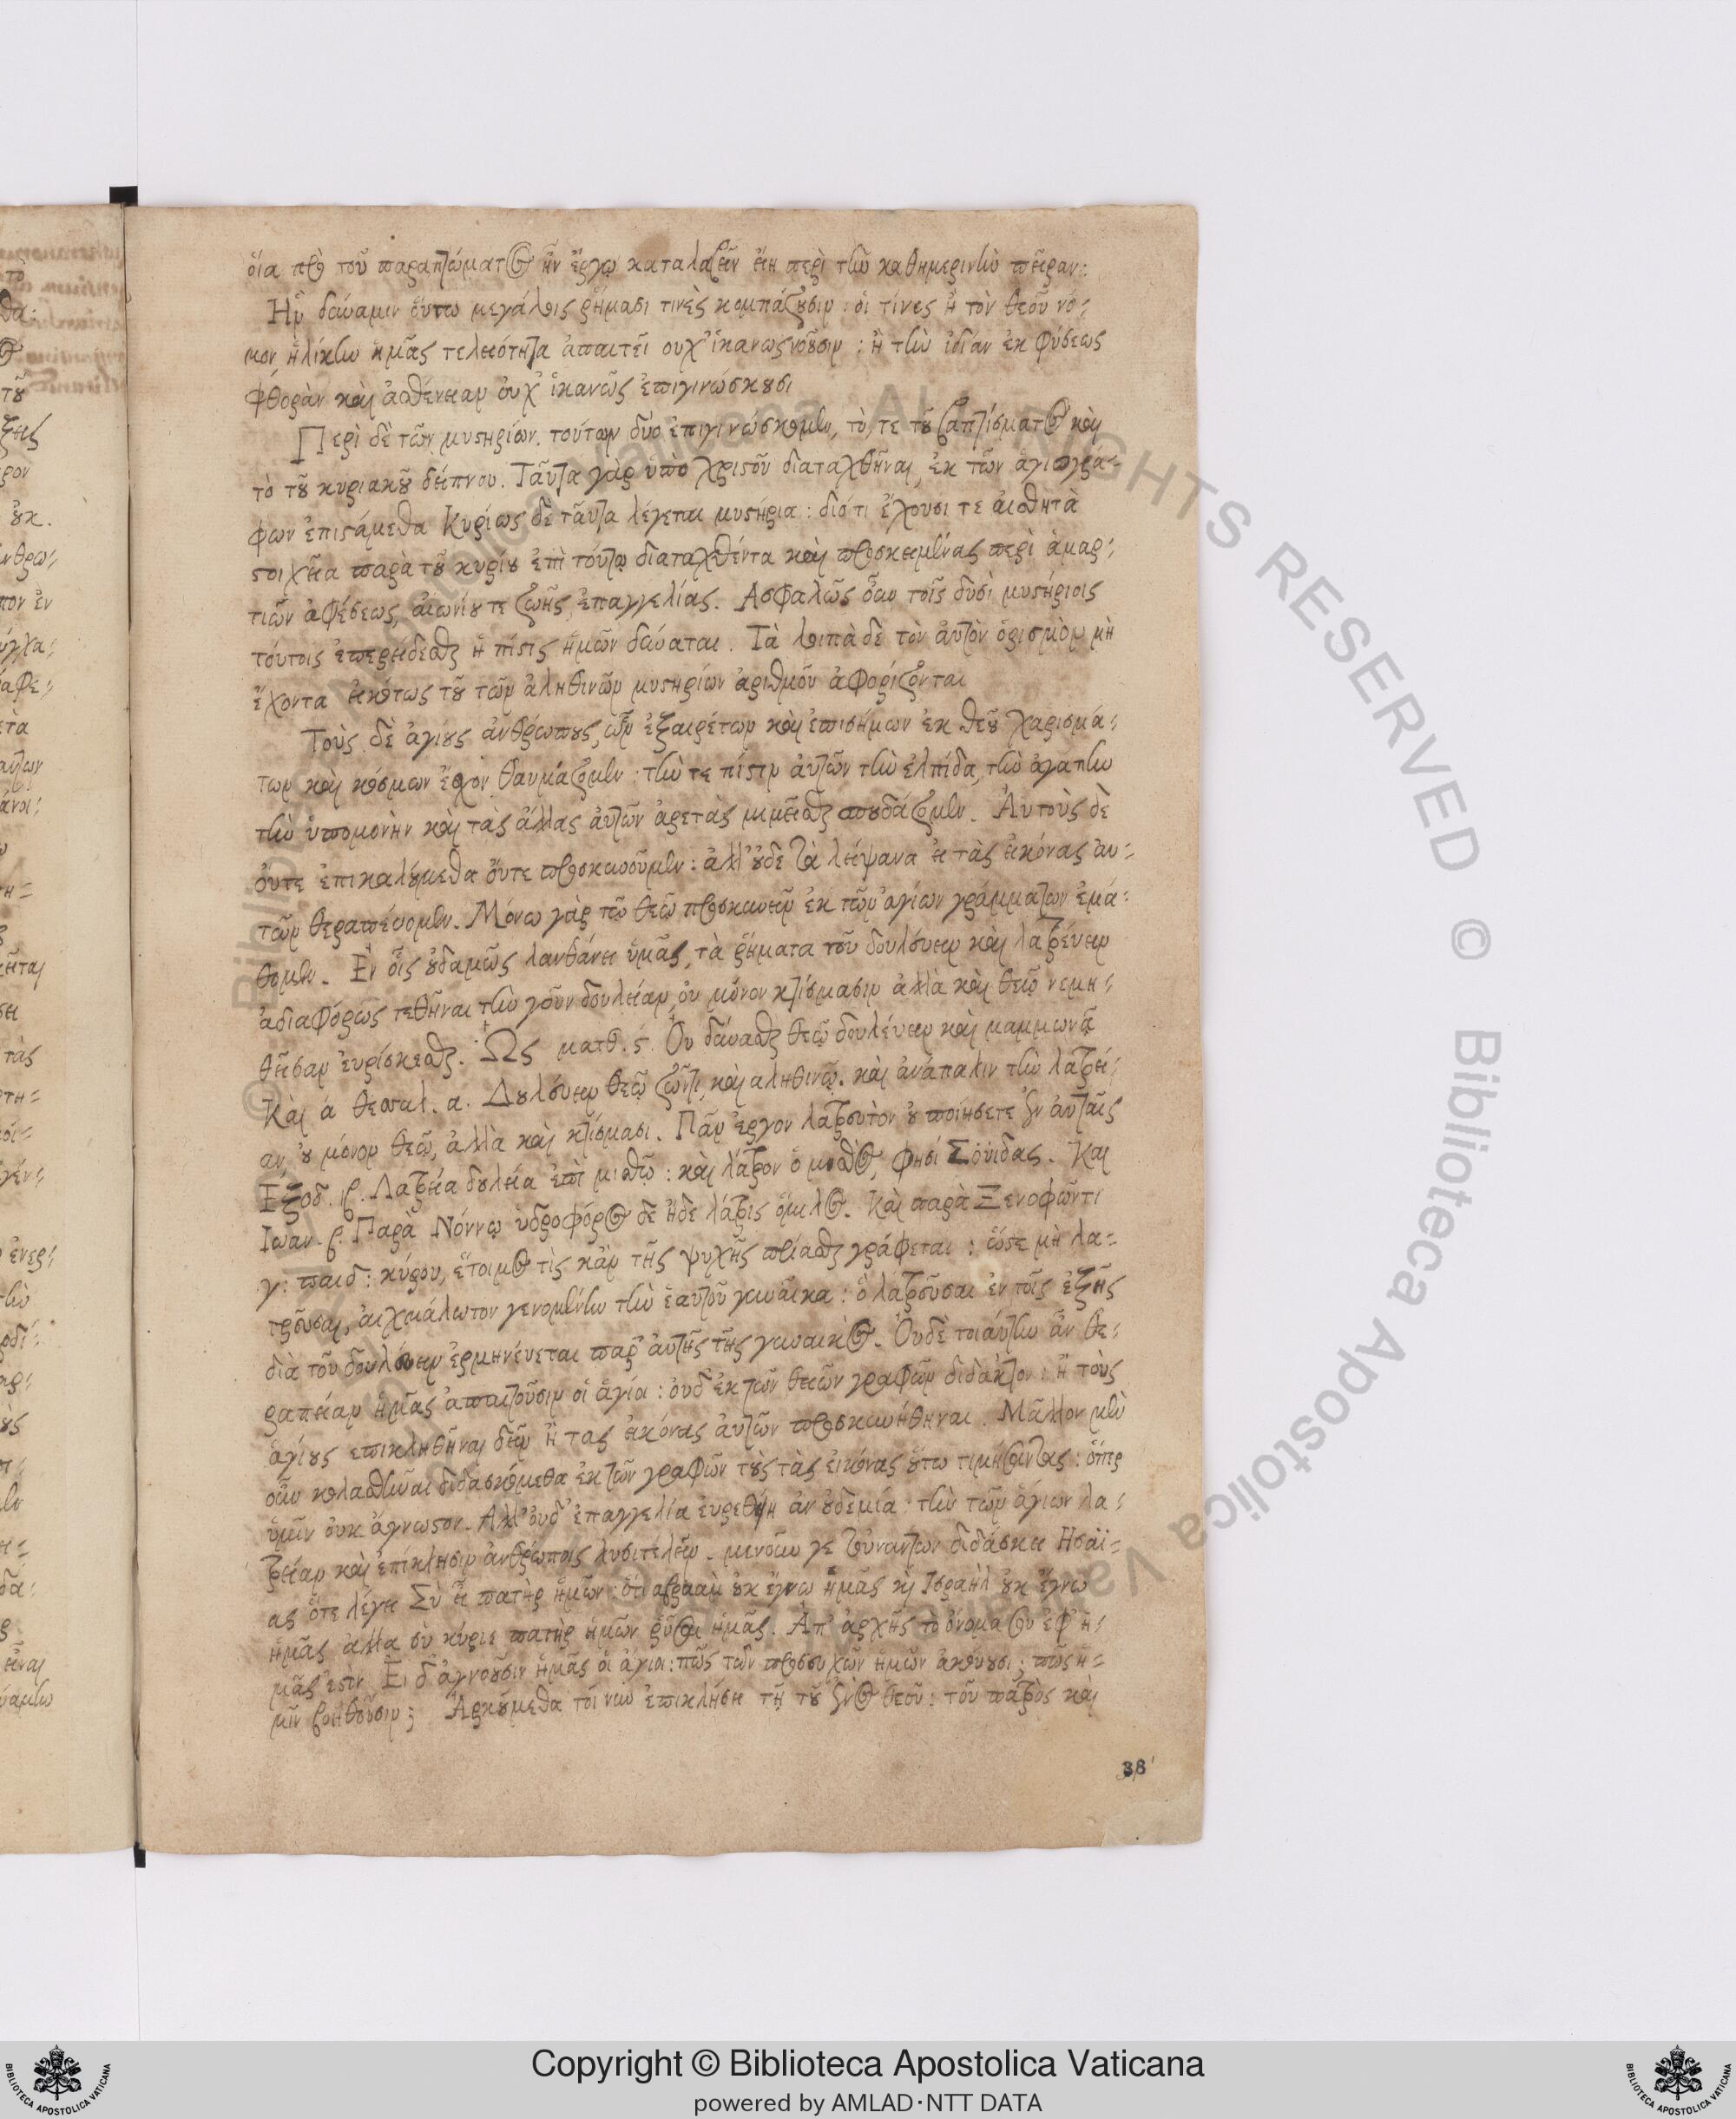 οἵα πρὸ τοῦ παραπτώματος ἦν ἔργῳ καταλαβεῖν εἴη περὶ τὴν καθημερινὴν πεῖραν:
Ἣν δύναμιν οὕτω μεγάλοις ῥήμασι τινὲς κομπάζουσιν: οἱ τίνες ἢ τὸν θεοῦ νό-
μον ἡλίκην ἡμᾶς τελειότητα ἀπαιτεῖ οὐχ' ἱκανως νοοῦσιν: ἢ τὴν ἰδίαν ἐκ φύσεως
φθορὰν καὶ ἀσθένειαν οὐχ' ἱκανῶς ἐπιγινώσκουσι
Περὶ δὲ τῶν μυστηρίων. τούτων δύο ἐπιγινώσκομεν, τὸ, τε τοῦ βαπτίσματος καὶ
τὸ τοῦ κυριακοῦ δείπνου. Ταῦτα γὰρ ὑπὸ χριστοῦ διαταχθῆναι ἐκ τῶν ἁγιογρά-
φων ἐπιστάμεθα Κυρίως δὲ ταῦτα λέγεται μυστήρια: διότι ἔχουσι τε αἰσθητὰ
στοιχεῖα παρὰ τοῦ κυρίου ἐπὶ τούτῳ διαταχθέντα καὶ προσκειμένας περὶ ἁμαρ-
τιῶν ἀφέσεως, αἰωνίου τε ζωῆς ἐπαγγελίας. Ἀσφαλῶς οὖν τοῖς δυσὶ μυστήριοις
τούτοις ἐπερείδεσθαι ἡ πίστις ἡμῶν δύναται. Τὰ λοιπὰ δὲ τὸν αὐτὸν ὁρισμὸν μὴ
ἔχοντα εἰκότως τοῦ τῶν ἀληθινῶν μυστηρίων ἀριθμοῦ ἀφορίζονται
Τοὺς δὲ ἁγίους ἀνθρώπους, ὧν ἐξαιρέτων καὶ ἐπισήμων ἐκ θεοῦ χαρισμά-
των καὶ κόσμων ἔχον θαυμάζομεν: τὴν τε πίστιν αὐτῶν τὴν ἐλπίδα, τὴν ἀγαπην
τὴν ὑπομονὴν καὶ τὰς ἄλλας αὐτῶν ἀρετὰς μιμεῖσθαι σπουδάζομεν. Αὐτοὺς δὲ
οὔτε ἐπικαλούμεθα οὔτε προσκυνοῦμεν: ἀλλ' οὐδε τὰ λείψανα ἢ τὰς εἰκόνας αὐ-
τῶν θεραπεύομεν. Μόνῳ γὰρ τῷ θεῷ προσκυνεῖν ἐκ τῶν ἁγίων γράμματων ἐμά-
θομεν. Ἐν οἷς οὐδαμῶς λανθάνει ὑμᾶς, τὰ ῥήματα τοῦ δουλεύειν καὶ λατρεύειν
ἀδιαφόρως τεθῆναι τὴν γοῦν δουλείαν, οὐ μόνον κτίσμασιν ἀλλὰ καὶ θεῷ νεμη-
θεῖσαν ἑυρίσκεσθαι. Ὡς ματθ. ϛ. Ου δύνασθαι θεῷ δουλεύειν καὶ μαμμωνᾷ
Καὶ ά θεσσαλ. α. Δουλεύειν θεῷ ζῶντι, καὶ αληθινῷ. καὶ ἀνάπαλιν τὴν λατρεί-
αν, οὐ μόνον θεῷ, ἀλλὰ καὶ κτίσμασι. Πᾶν ἔργον λατρευτὸν οὐ ποιήσετε ἐν αὐταῖς
Εξοδ. ιβ. Λατρεία δουλεία ἐπὶ μισθῷ: καὶ λάτρον ὁ μισθὸς, φησὶ Σουίδας. Και
Ιωαν. β. Παρὰ Νόννῳ ὑδροφόρος δε ἦδε λάτρις ὅμιλος. Καὶ παρὰ Ξενοφῶντι
γ: παιδ: κύρου, ἕτοιμος τὶς κἂν τῆς ψυχῆς πρίασθαι γράφεται: ὥστε μὴ λα-
τρεῦσαι, αἰχμάλωτον γενομένην τὴν ἑαυτοῦ γυναῖκα: ὃ λάτρεῦσαι ἐν τοῖς ἑξῆς
διὰ τοῦ δουλεύειν ἑρμηνέυεται παρ' αὐτῆς τῆς γυναικὸς. Οὐδὲ τοιάυτην ἂν θε-
ραπείαν ἡμᾶς ἀπαιτοῦσιν οἱ ἅγιοι: οὐδ' ἐκ τῶν θείων γραφῶν διδακτον: ἢ τοὺς
ἁγίους επικληθῆναι δεῖν ἢ τας εἰκόνας αὐτῶν προσκυνήθηναι. Μᾶλλον μὲν
οὖν κολασθῆναι διδασκόμεθα ἐκ τῶν γραφῶν τοὺς τὰς εἰκόνας οὕτω τιμήσαντας: ὅπερ
ὑμῖν οὐκ ἄγνωστον. Ἀλλ' οὐδ' ἐπαγγελία ἑυρεθείη ἀν οὐδεμία: τὴν τῶν ἁγίων λα-
τρείαν καὶ ἐπίκλησιν ἀνθρώποις λυσιτελεῖν. μενοῦν γε τοὐναντίον διδάσκει Ησαΐ-
ας ὅτε λέγει Σὺ εἶ πατὴρ ἡμῶν: ὅτι αβρααμ οὐκ ἔγνω ἡμᾶς καὶ Ισραὴλ οὐκ ἔγνω
ἡμᾶς ἀλλα σὺ κύριε πατὴρ ἡμῶν ῥῦσαι ἡμᾶς. Ἀπ' ἀρχῆς τὸ ὄνομα σου ἐφ' ἡ-
μᾶς ἐστιν Εἰ δ' ἀγνοοῦσιν ἡμᾶς οἱ ἁγιοι: πῶς τῶν προσευχῶν ἡμῶν ἀκούουσι; πῶς ἡ-
μῖν βοηθοῦσιν; Ἀρκούμεθα τοίνυν ἐπικλήσει τῇ τοῦ ἑνὸς θεοῦ: τοῦ πατρὸς καὶ
38
Copyright © Biblioteca Apostolica Vaticana
powered by AMLAD·NTT DATA